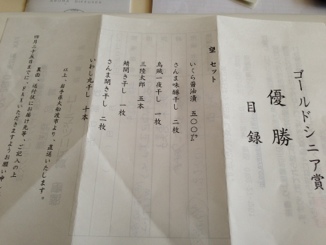 ゴールドシニア賞
優勝
目録
望 セット
いくら醤油漬 五〇〇㌘
さんま味醂干し 二枚
烏賊一夜干し 一枚
三陸太郎 五本
鯖開き干し 一枚
さんま開き干し 二枚
いわし丸干し 十本
以上、岩手県大船渡市より、直送いたします。